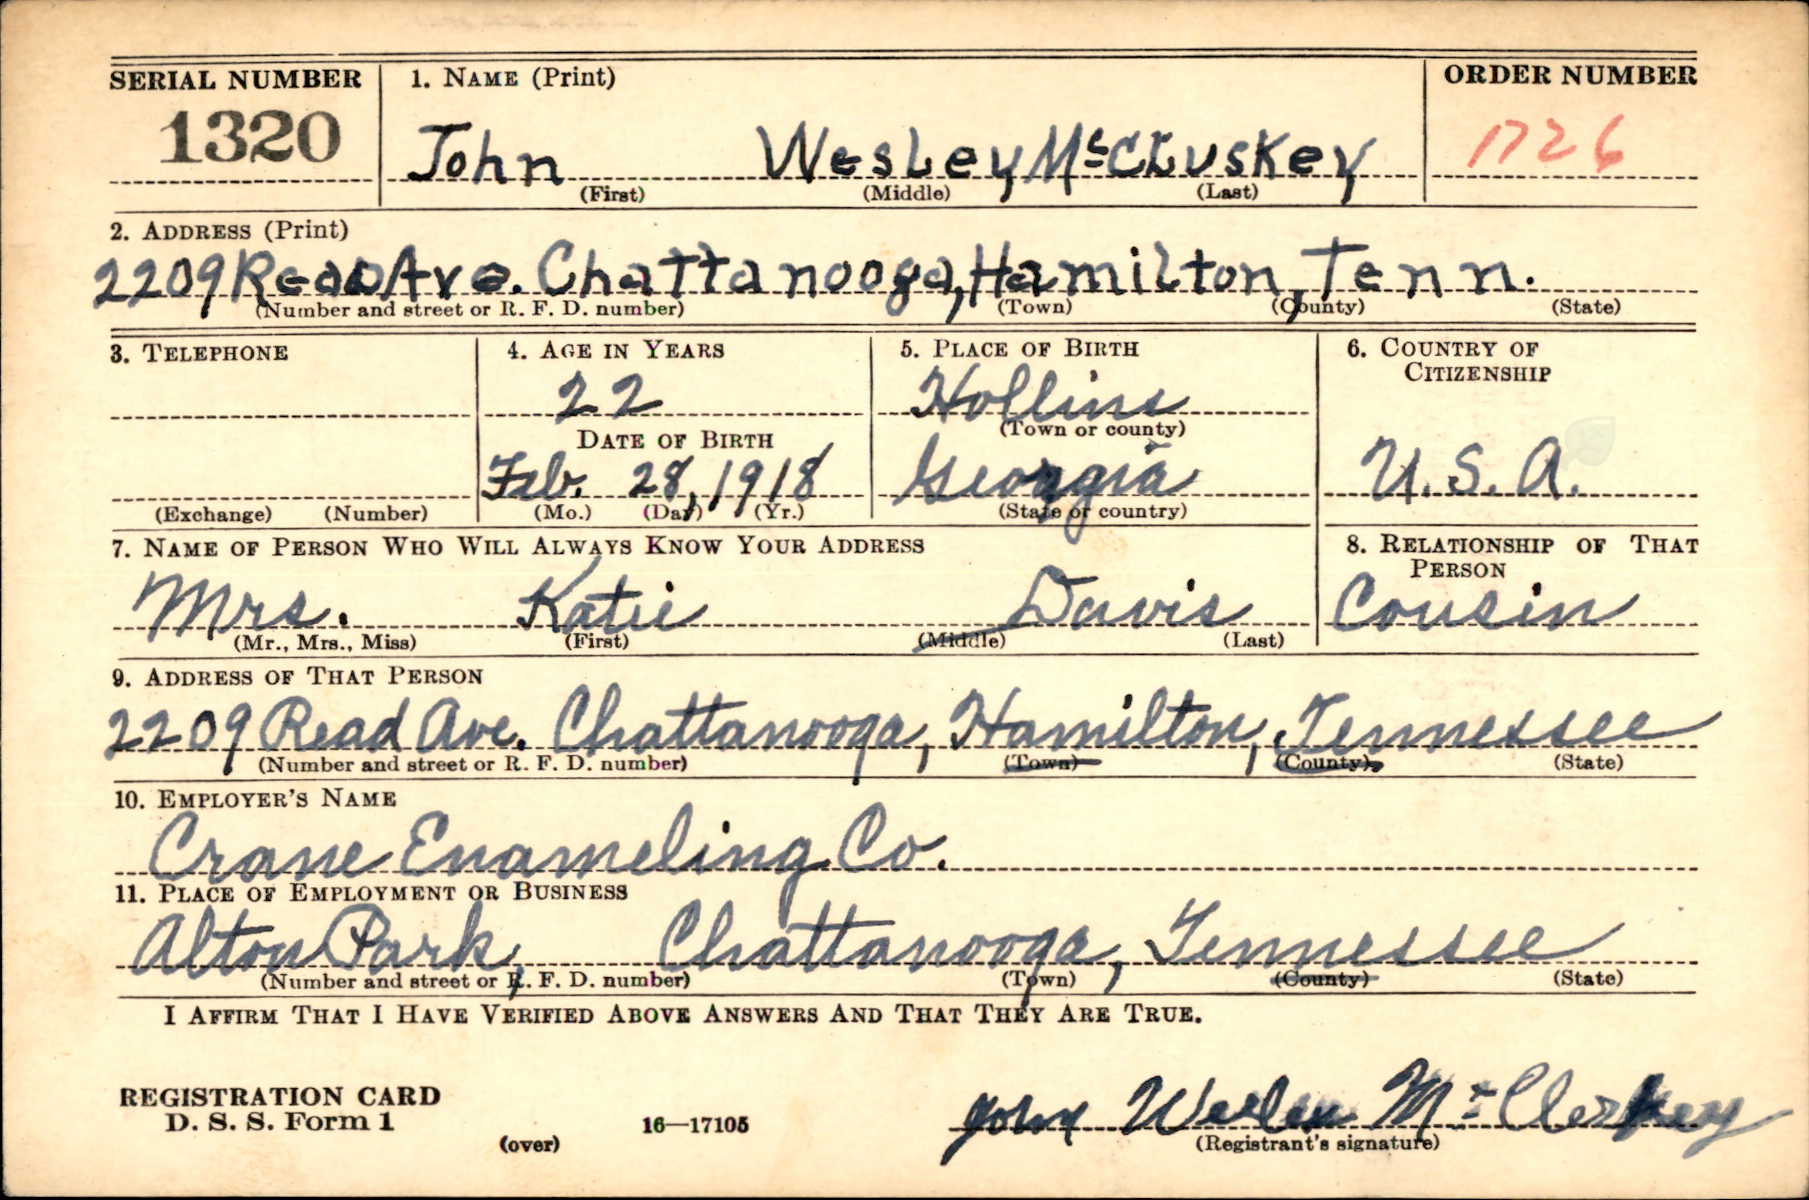 SERIAL NUMBER 1. NAME (Print) ORDER NUMBER
1320 John Wesley McCluskey 1726
(First) (Middle) (Last)
2. ADDRESS (Print)
2209 Read Ave. Chattanooga, Hamilton, Tenn.
(Number and street or R. F. D. number) (Town) (County) (State)
3. TELEPHONE 4. AGE IN YEARS 5. PLACE OF BIRTH 6. COUNTRY OF
CITIZENSHIP
22 Hollins
(Town or county)
DATE OF BIRTH
Feb. 28, 1918 Georgia U.S.A.
(Exchange) (Number) (Mo.) (Day) (Yr.) (State or country)
7. NAME OF PERSON WHO WILL ALWAYS KNOW YOUR ADDRESS 8. RELATIONSHIP OF THAT
PERSON
Mrs. Katie Davis Cousin
(Mr., Mrs., Miss) (First) (Middle) (Last)
9. ADDRESS OF THAT PERSON
2209 Read Ave. Chattanooga, Hamilton, Tennessee
(Number and street or R. F. D. number) (Town) (County) (State)
10. EMPLOYER'S NAME
Crane Enameling Co.
11. PLACE OF EMPLOYMENT OR BUSINESS
Alton Park, Chattanooga, Tennessee
(Number and street or R. F. D. number) (Town) (County) (State)
I AFFIRM THAT I HAVE VERIFIED ABOVE ANSWERS AND THAT THEY ARE TRUE.
REGISTRATION CARD
D. S. S. Form 1
(over) 16—17105
John Weslen McCleskey
(Registrant's signature)